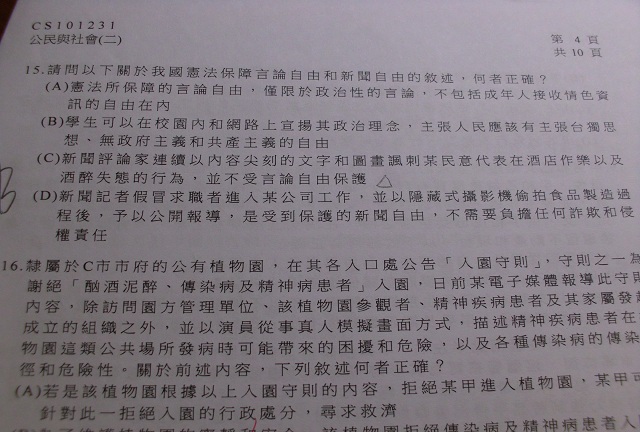 CS101231
公民與社會(二)
第 4 頁
共 10 頁
15.請問以下關於我國憲法保障言論自由和新聞自由的敘述，何者正確？
(A)憲法所保障的言論自由，僅限於政治性的言論，不包括成年人接收情色資
訊的自由在內
(B)學生可以在校園內和網路上宣揚其政治理念，主張人民應該有主張台獨思
想、無政府主義和共產主義的自由
(C)新聞評論家連續以內容尖刻的文字和圖畫諷刺某民意代表在酒店作樂以及
酒醉失態的行為，並不受言論自由保護 △
B
(D)新聞記者假冒求職者進入某公司工作，並以隱藏式攝影機偷拍食品製造過
程後，予以公開報導，是受到保護的新聞自由，不需要負擔任何詐欺和侵
權責任
16.隸屬於C市市府的公有植物園，在其各入口處公告「入園守則」，守則之一為
謝絕「酗酒泥醉、傳染病及精神病患者」入園，日前某電子媒體報導此守則
內容，除訪問園方管理單位、該植物園參觀者、精神疾病患者及其家屬發
成立的組織之外，並以演員從事真人模擬畫面方式，描述精神疾病患者在
物園這類公共場所發病時可能帶來的困擾和危險，以及各種傳染病的傳染
徑和危險性。關於前述內容，下列敘述何者正確？
(A)若是該植物園根據以上入園守則的內容，拒絕某甲進入植物園，某甲可
針對此一拒絕入園的行政處分，尋求救濟